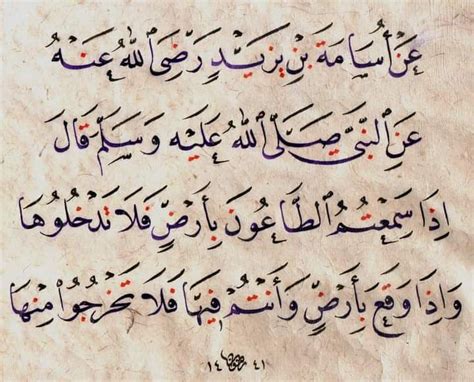 عَنْ أُسَامَةَ بْنِ يَزِيدٍ رَضِيَ اللهُ عَنْهُ
عَنِ النَّبِيِّ صَلَّى اللهُ عَلَيْهِ وَسَلَّمَ قَالَ
إِذَا سَمِعْتُمُ الطَّاعُونَ بِأَرْضٍ فَلَا تَدْخُلُوهَا
وَإِذَا وَقَعَ بِأَرْضٍ وَأَنْتُمْ فِيهَا فَلَا تَخْرُجُوا مِنْهَا
١٤ ٤١